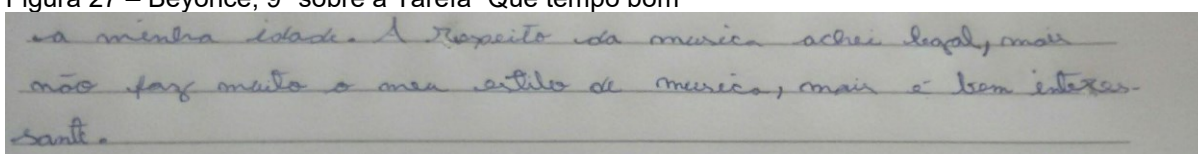 Figura 27 – Beyoncé, 9º sobre a Tarefa "Que tempo bom"
a minha idade. A Respeito da musica achei legal, mais
não faz muito o meu estilo de musica, mais é bem interes-
sante.